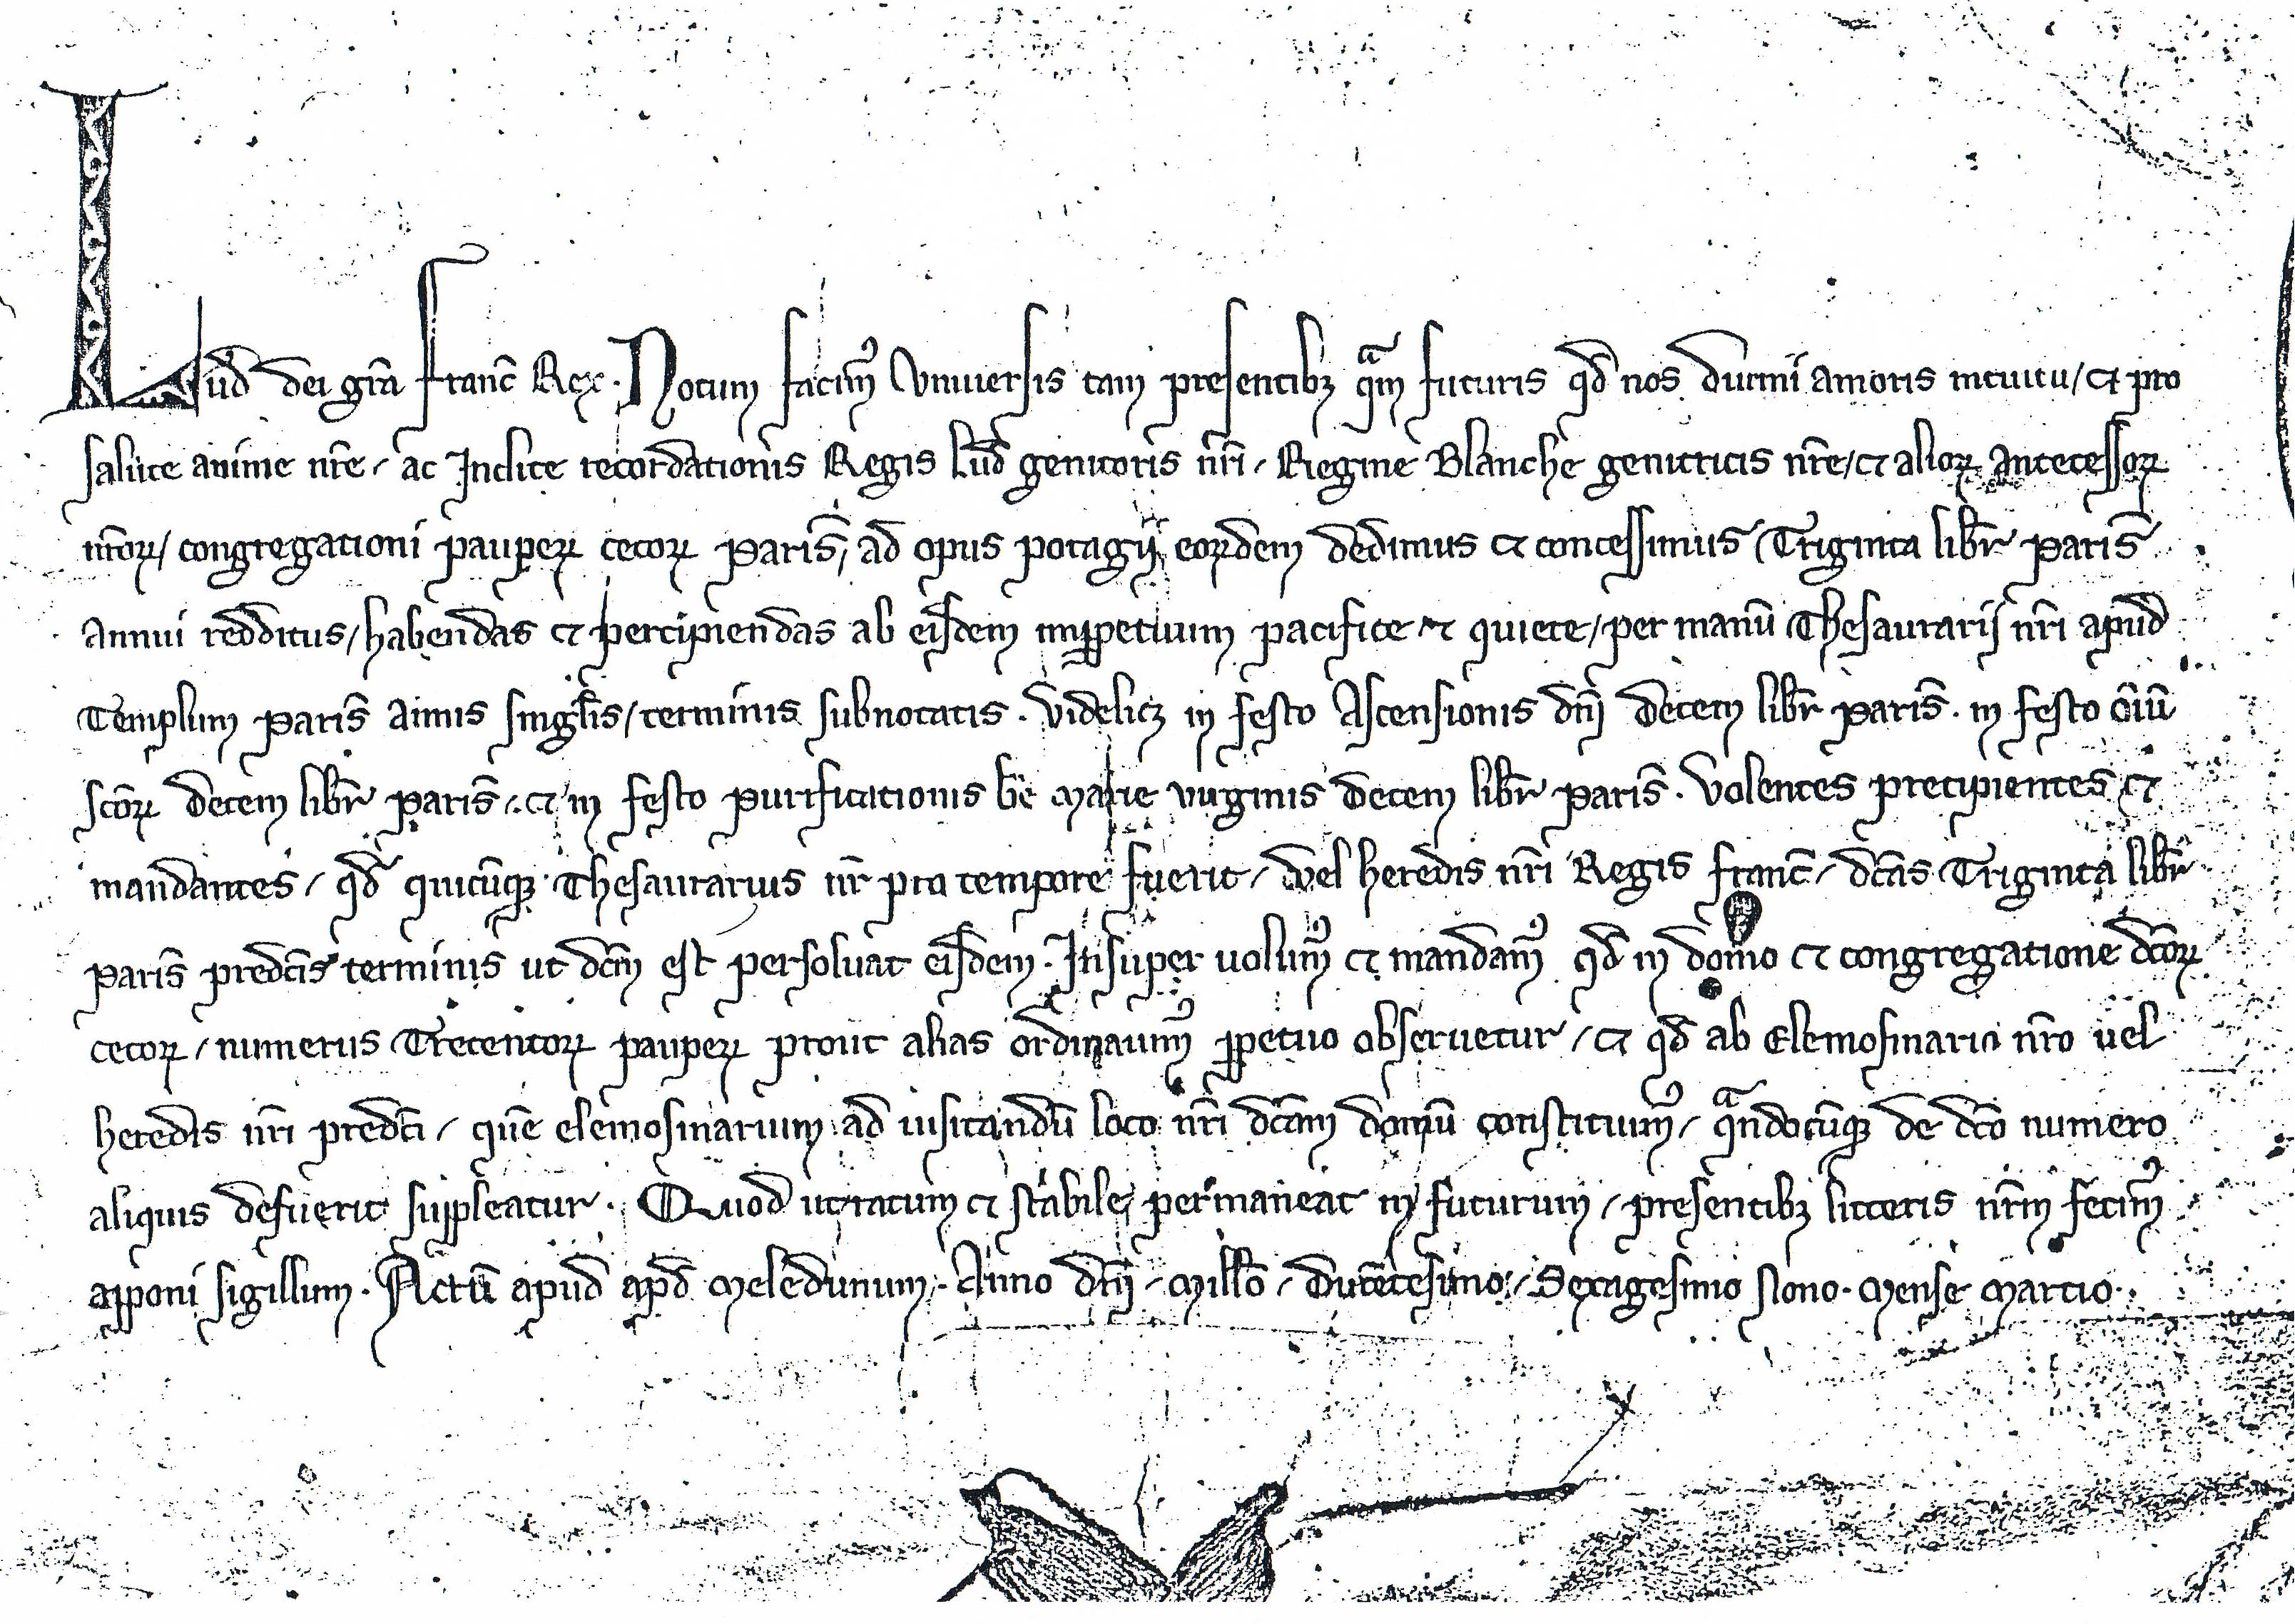 Lud̄ dei gr̄a Franc̄ Rex. Notum facimꝰ Vniuersis tam presentibꝫ qᵃm futuris qd̄ nos diuini amoris intuitu / et pro
salute anime nr̄e / ac Inclite recordationis Regis Lud̄ genitoris nr̄i / Regine Blanche genitricis nr̄e / et alioꝝ antecessoꝝ
nr̄oꝝ / congregationi pauperꝝ cecoꝝ Paris̄ / ad opus potagij eoꝝdem dedimus et concessimus / Triginta libr̄ paris̄
annui redditus / habendas et percipiendas ab eisdem imꝑpetuum pacifice et quiete / per manū Thesaurarij nr̄i apud
Templum Paris̄ annis singl̄is / terminis subnotatis. Videlicꝫ in festo Ascensionis dn̄i decem libr̄ paris̄. in festo oīū
scōꝝ decem libr̄ paris̄. et in festo purificationis bē Marie virginis decem libr̄ paris̄. Volentes precipientes et
mandantes / qd̄ quicūqꝫ Thesaurarius nr̄ pro tempore fuerit / vel heredis nr̄i Regis franc̄ / dc̄as Triginta libr̄
paris̄ predc̄is terminis ut dc̄m est persoluat eisdem. Insuper uolumꝰ et mandamꝰ qd̄ in domo et congregatione dc̄oꝝ
cecoꝝ / numerus Trecentoꝝ pauperꝝ prout alias ordinauimꝰ ꝑpetuo obseruetur / et qd̄ ab Elemosinario nr̄o uel
heredis nr̄i predc̄i / quē elemosinarium ad uisitandū loco nr̄i dc̄am domū constituimꝰ / qᵃndocūqꝫ de dc̄o numero
aliquis defuerit suppleatur. Quod ut ratum et stabile permaneat in futurum / presentibꝫ litteris nr̄m fecimꝰ
apponi sigillum. Actū apud apd̄ Meledunum. Anno dn̄i / Mill̄o / ducētesimo / Sexagesimo Nono. Mense Martio.